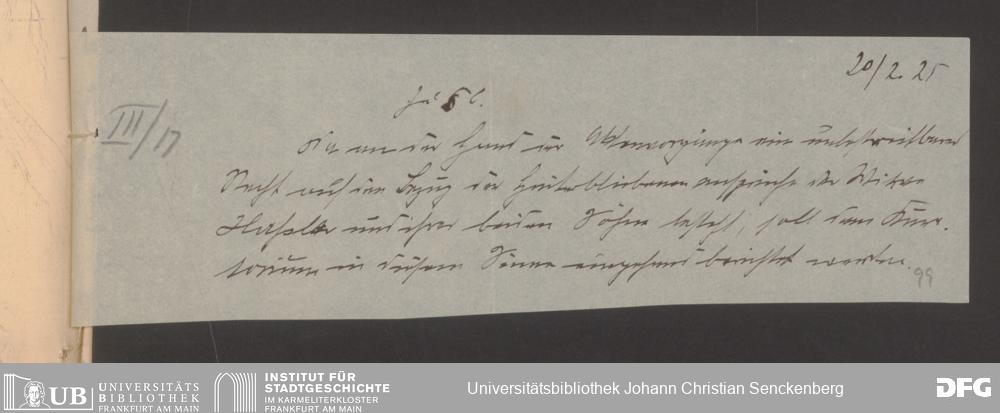 20/2. 25
Zu § 6.
III/17
Da an der Hand der Aktenvorgänge ein unbestreitbares
Recht auf den Bezug der Hinterbliebenenansprüche der Witwe
und ihrer beiden Söhne besteht, soll dem Kura-
torium in diesem Sinne eingehend berichtet werden.
99
UB UNIVERSITÄTS
BIBLIOTHEK
FRANKFURT AM MAIN
INSTITUT FÜR
STADTGESCHICHTE
IM KARMELITERKLOSTER
FRANKFURT AM MAIN
Universitätsbibliothek Johann Christian Senckenberg
DFG